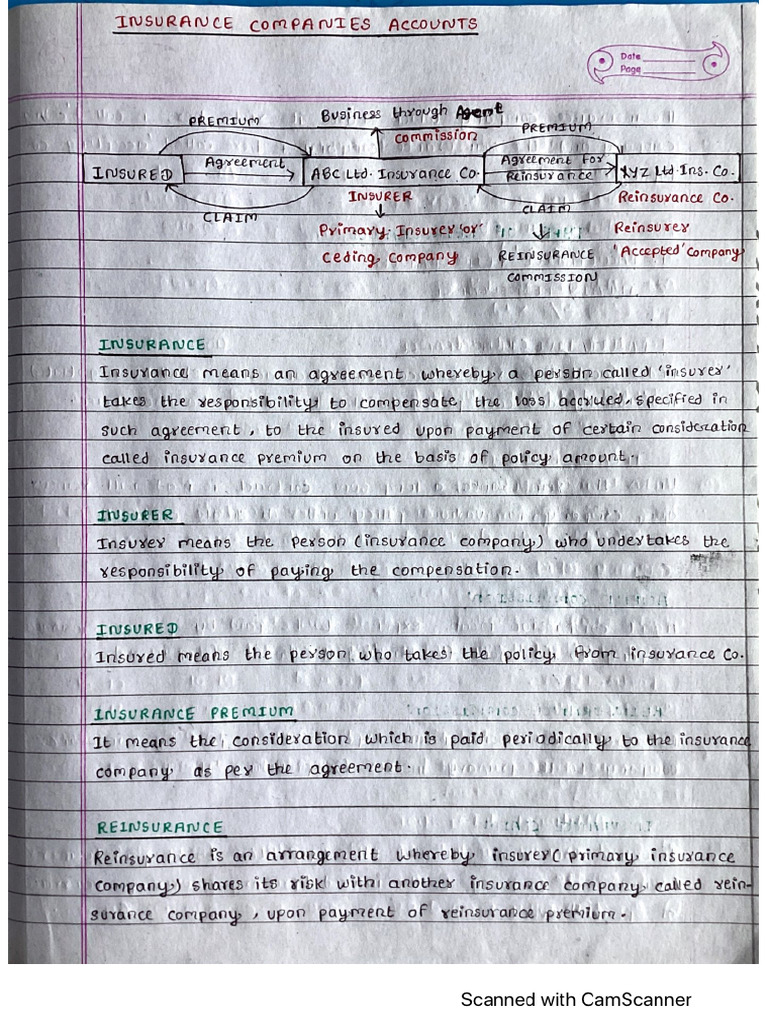 INSURANCE COMPANIES ACCOUNTS
Date
Page
PREMIUM
Business through Agent
Commission
PREMIUM
INSURED
Agreement
ABC Ltd. Insurance Co.
Agreement for
Reinsurance
XYZ Ltd. Ins. Co.
INSURER
Reinsurance Co.
CLAIM
CLAIM
Primary Insurer 'or'
Reinsurer
Ceding company
REINSURANCE
'Accepted' Company
COMMISSION
INSURANCE
Insurance means an agreement whereby a person called 'insurer'
takes the responsibility to compensate the loss accrued, specified in
such agreement, to the insured upon payment of certain consideration
called insurance premium on the basis of policy amount.
INSURER
Insurer means the person (insurance company) who undertakes the
responsibility of paying the compensation.
INSURED
Insured means the person who takes the policy from insurance Co.
INSURANCE PREMIUM
It means the consideration which is paid periodically to the insurance
company as per the agreement.
REINSURANCE
Reinsurance is an arrangement whereby insurer (primary insurance
company) shares its risk with another insurance company called rein-
surance company, upon payment of reinsurance premium.
Scanned with CamScanner